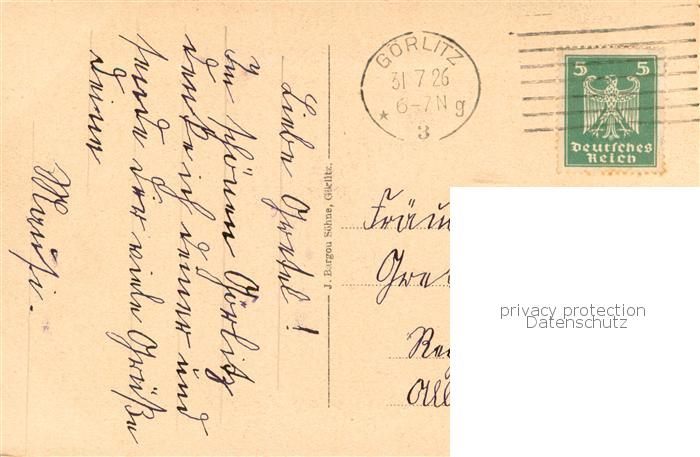 GÖRLITZ
31 7 26
6-7N g
* 3
5 5
Deutsches
Reich
Liebe Gretel!
Im schönen Görlitz
denke ich deiner und
sende dir viele Grüße
deine
J. Bargou Söhne, Görlitz.
privacy protection
Datenschutz